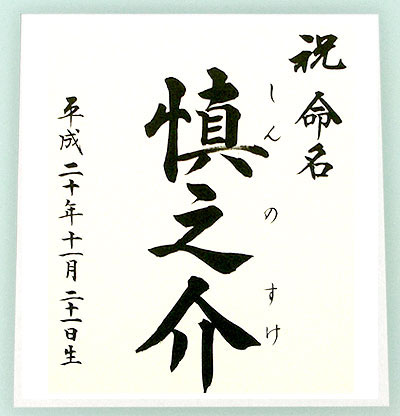 祝 命名
慎之介
しんのすけ
平成二十年十一月二十一日生